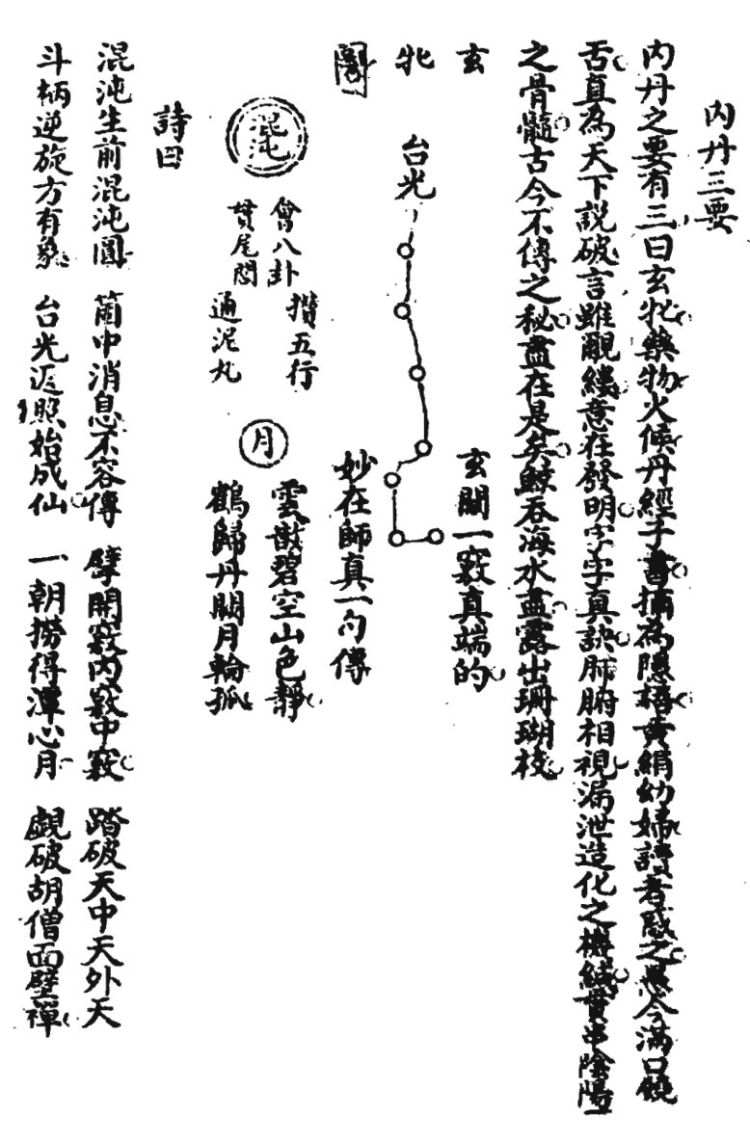 內丹三要
內丹之要有三曰玄牝藥物火候丹經子書摘為隱語黃絹幼婦讀者惑之愚今滿口饒
舌真為天下說破言雖覼縷意在發明字字真訣肺腑相視漏泄造化之機緘貫串陰陽
之骨髓古今不傳之秘盡在是矣鯨吞海水盡露出珊瑚枝
玄
牝
圖
台光
玄關一竅真端的
妙在師真一句傳
混沌
會八卦
貫尾閭
攢五行
通泥丸
月
雲散碧空山色靜
鶴歸丹闕月輪孤
詩曰
混沌生前混沌圓 箇中消息不容傳 擘開竅內竅中竅 踏破天中天外天
斗柄逆旋方有象 台光返照始成仙 一朝撈得潭心月 覷破胡僧面壁禪